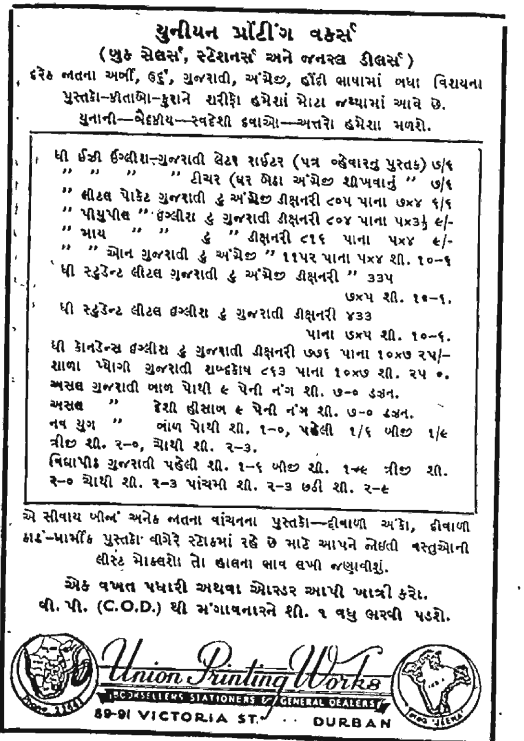 યુનીયન પ્રીંટીંગ વર્ક્સ
(બુક સેલર્સ, સ્ટેશનર્સ અને જનરલ ડીલર્સ)
દરેક જાતના અર્બી, ઉર્દુ, ગુજરાતી, અંગ્રેજી, હીંદી ભાષામાં બધા વિશયના
પુસ્તકો-કીતાબો-કુરાને શરીફો હમેશાં મોટા જથ્થામાં આવે છે.
યુનાની—બૈદકીય—સ્વદેશી દવાઓ—અત્તરો હમેશા મળશે.
ધી ઈઝી ઈંગ્લીશ-ગુજરાતી લેટર રાઈટર (પત્ર વ્હેવારનુ પુસ્તક) ૭/૬
” ” ” ” ટીચર (ઘર બેઠા અંગ્રેજી શીખવાનું ” ૭/૬
” લીટલ પોકેટ ગુજરાતી ટુ અંગ્રેજી ડીક્ષનરી ૮૦૫ પાના ૭x૪ ૬/૬
” પીયુપીલ ” ઈંગ્લીશ ટુ ગુજરાતી ડીક્ષનરી ૮૦૪ પાના ૫x૩½ ૯/-
” માય ” ” ટુ ” ડીક્ષનરી ૮૧૬ પાના ૫x૪ ૯/-
” ” ઓન ગુજરાતી ટુ અંગ્રેજી ” ૧૧૫૨ પાના ૫x૪ શી. ૧૦-૬
ધી સ્ટુડેન્ટ લીટલ ગુજરાતી ટુ અંગ્રેજી ડીક્ષનરી ” ૩૩૫
૭x૫ શી. ૧૦-૬.
ધી સ્ટુડેન્ટ લીટલ ઈંગ્લીશ ટુ ગુજરાતી ડીક્ષનરી ૪૩૩
પાના ૭x૫ શી. ૧૦-૬.
ધી કોનડેન્સ ઈંગ્લીશ ટુ ગુજરાતી ડીક્ષનરી ૭૭૬ પાના ૧૦x૭ ૨૫/-
શાળા પ્યોગી ગુજરાતી શબ્દકોષ ૮૬૩ પાના ૧૦x૭ શી. ૨૫ ૦.
અસલ ગુજરાતી બાળ પોથી ૯ પેની નંગ શી. ૭-૦ ડઝન.
અસલ ” દેશી હીસાબ ૯ પેની નંગ શી. ૭-૦ ડઝન.
નવ યુગ ” બાળ પોથી શી. ૧-૦, પહેલી ૧/૬ બીજી ૧/૯
ત્રીજી શી. ૨-૦, ચોથી શી. ૨-૩.
વિદ્યાપીઠ ગુજરાતી પહેલી શી. ૧-૬ બીજી શી. ૧-૯ ત્રીજી શી.
૨-૦ ચોથી શી. ૨-૩ પાંચમી શી. ૨-૩ છઠી શી. ૨-૯
એ સીવાય બીજાં અનેક જાતના વાંચનના પુસ્તકો—દીવાળી અંકો, દીવાળી
કાર્ડ-ધાર્મીક પુસ્તકો વીગેરે સ્ટોકમાં રહે છે માટે આપને જોઈતી વસ્તુઓની
લીસ્ટ મોકલશો તો હાલના ભાવ લખી જણાવીશું.
એક વખત પધારી અથવા ઓરડર આપી ખાત્રી કરો.
વી. પી. (C.O.D.) થી મંગાવનારને શી. ૧ વધુ ભરવી પડશે.
Union Printing Works
BOOKSELLERS STATIONERS & GENERAL DEALERS
Phone 21441
89-91 VICTORIA ST. DURBAN